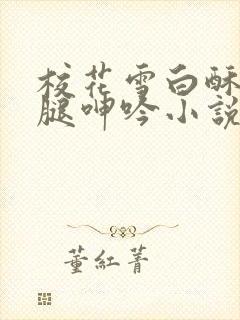 校花雪白酥
腿呻吟小説
董紅菁